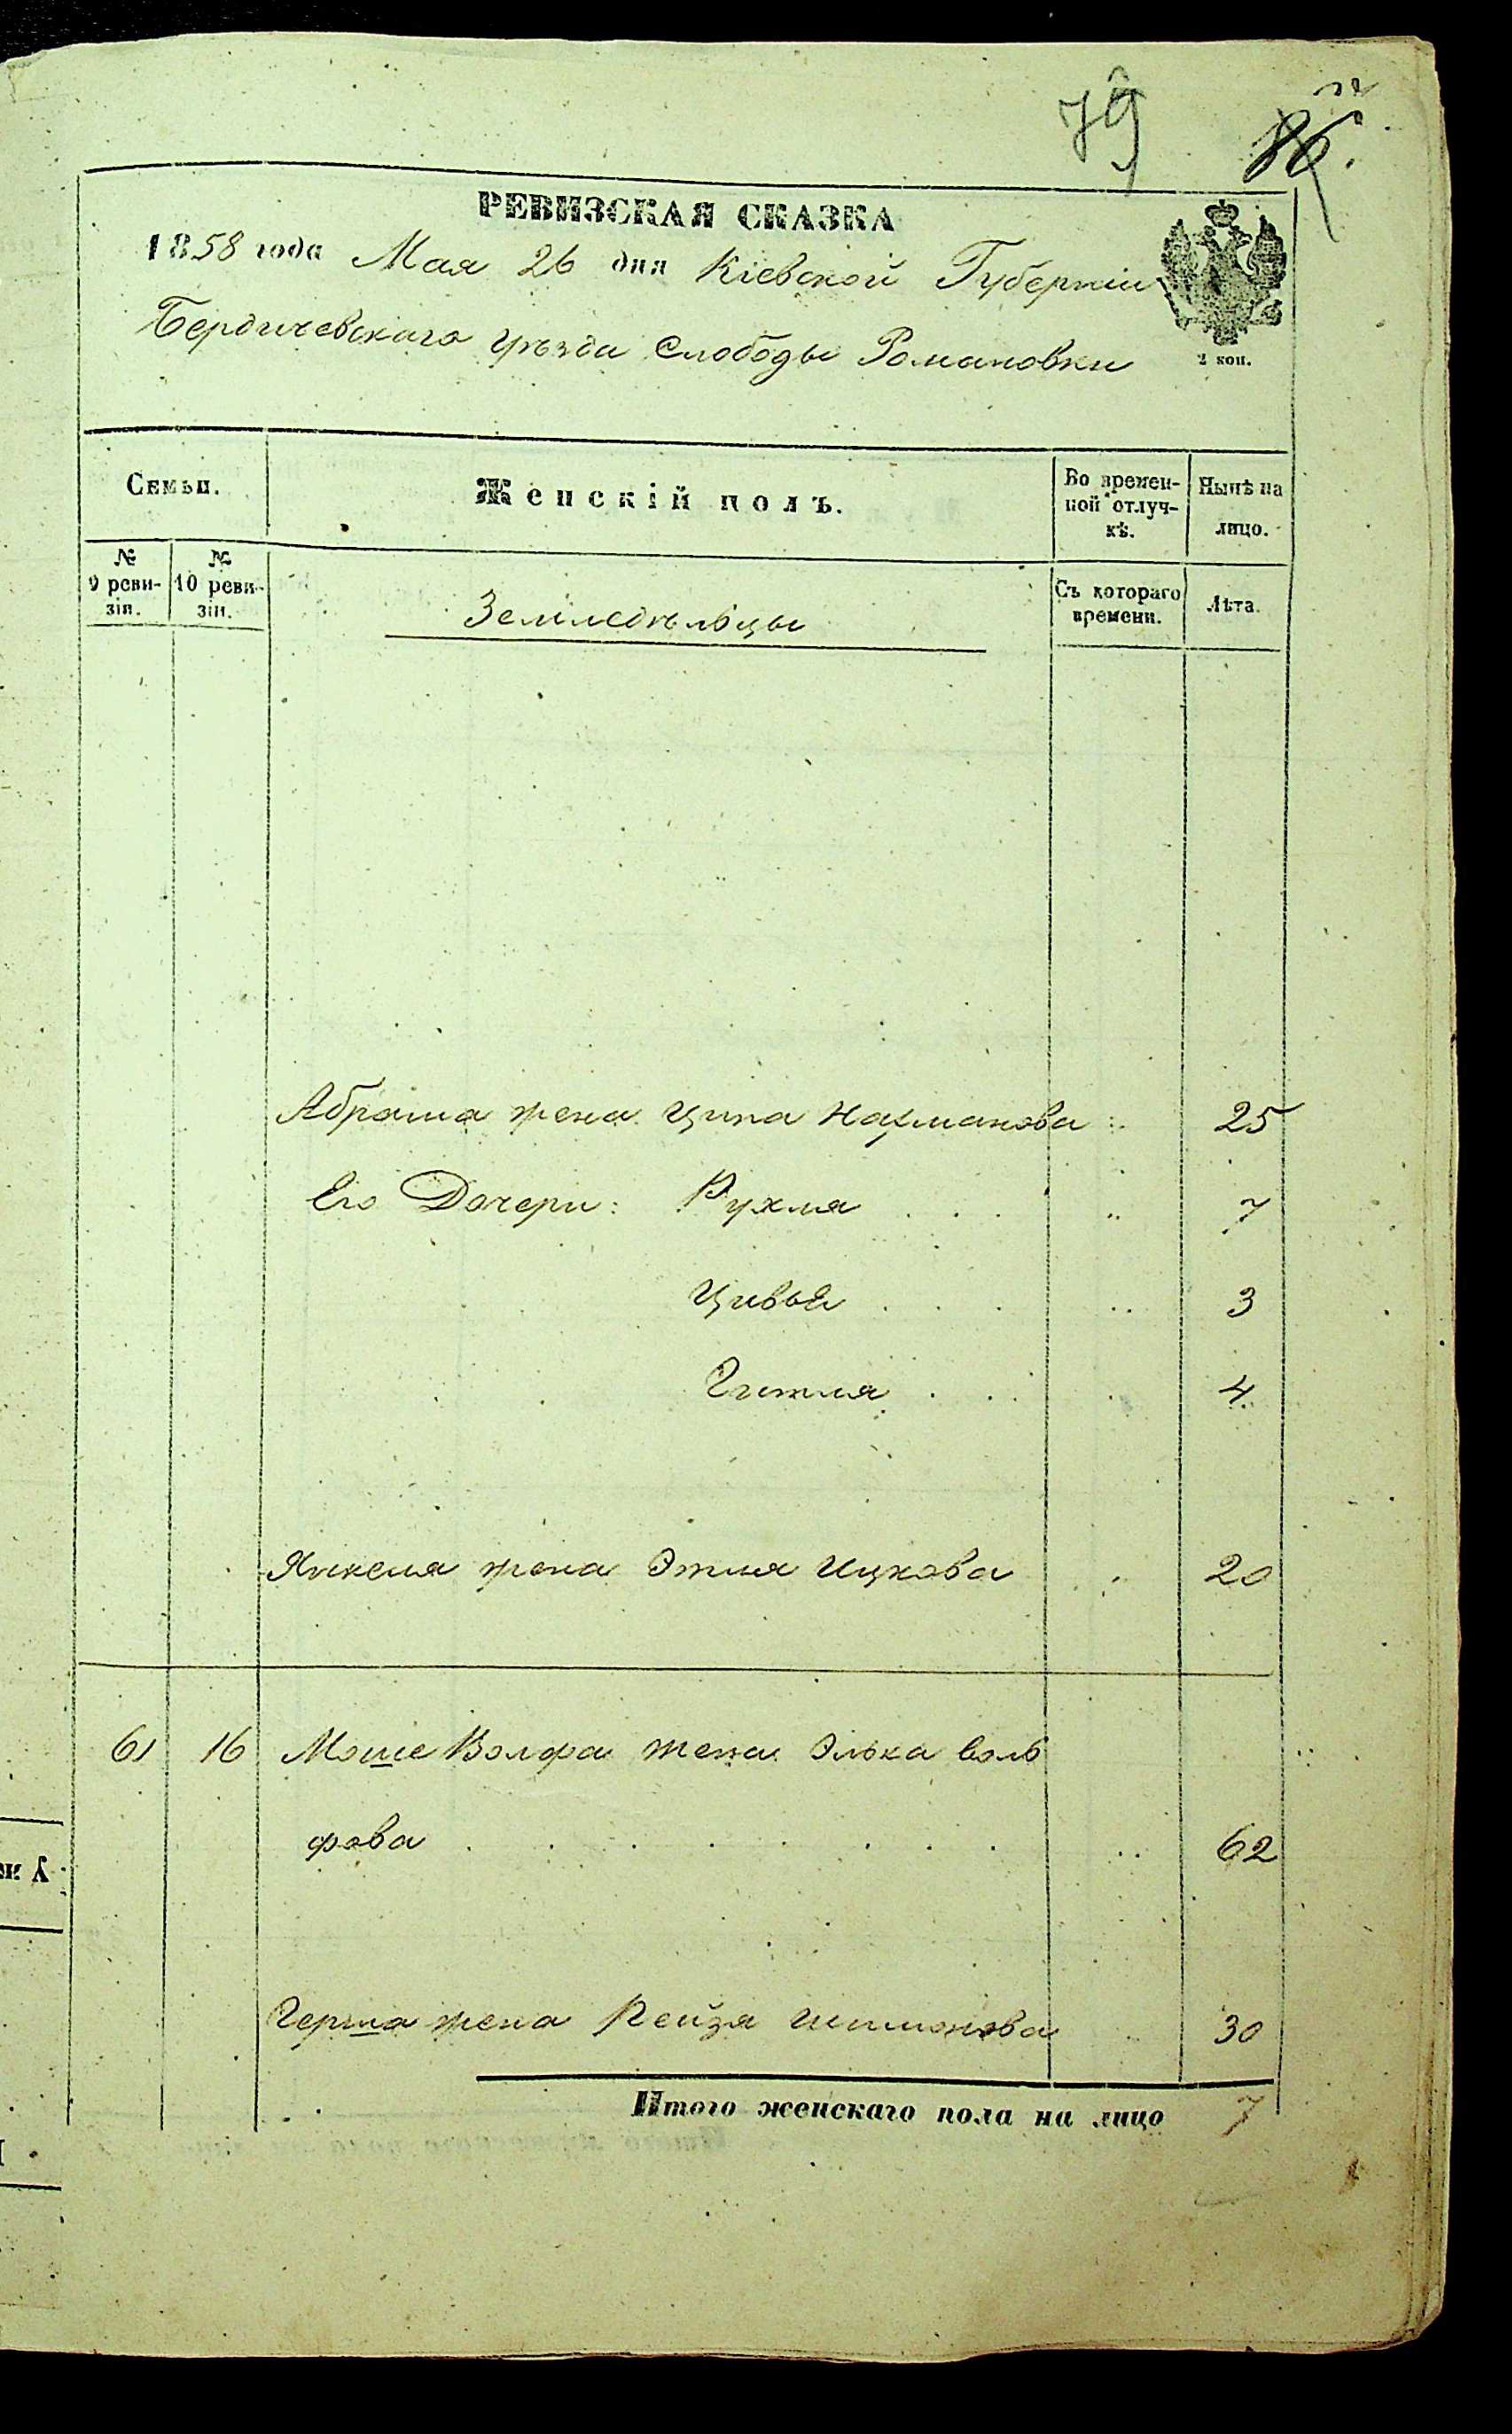 79 86.
РЕВИЗСКАЯ СКАЗКА
1858 года Мая 26 дня Кіевской Губерніи
Бердичевскаго уѣзда Слободы Романовки
2 коп.
Семьи.
Женскій полъ.
Во времен-
ной отлуч-
кѣ.
Нынѣ на
лицо.
№
9 реви-
зіи.
№
10 реви-
зіи.
Земледѣльцы
Съ котораго
времени.
Лѣта.
Абрама жена Ципа Нахманова 25
Его Дочери: Рухля 7
Цивья 3
Гитля 4
Янкеля жена Этля Ицкова 20
61 16 Моше Волфа жена Элька Воль
фова 62
Герша жена Рейзя Шимонова 30
Итого женскаго пола на лицо 7